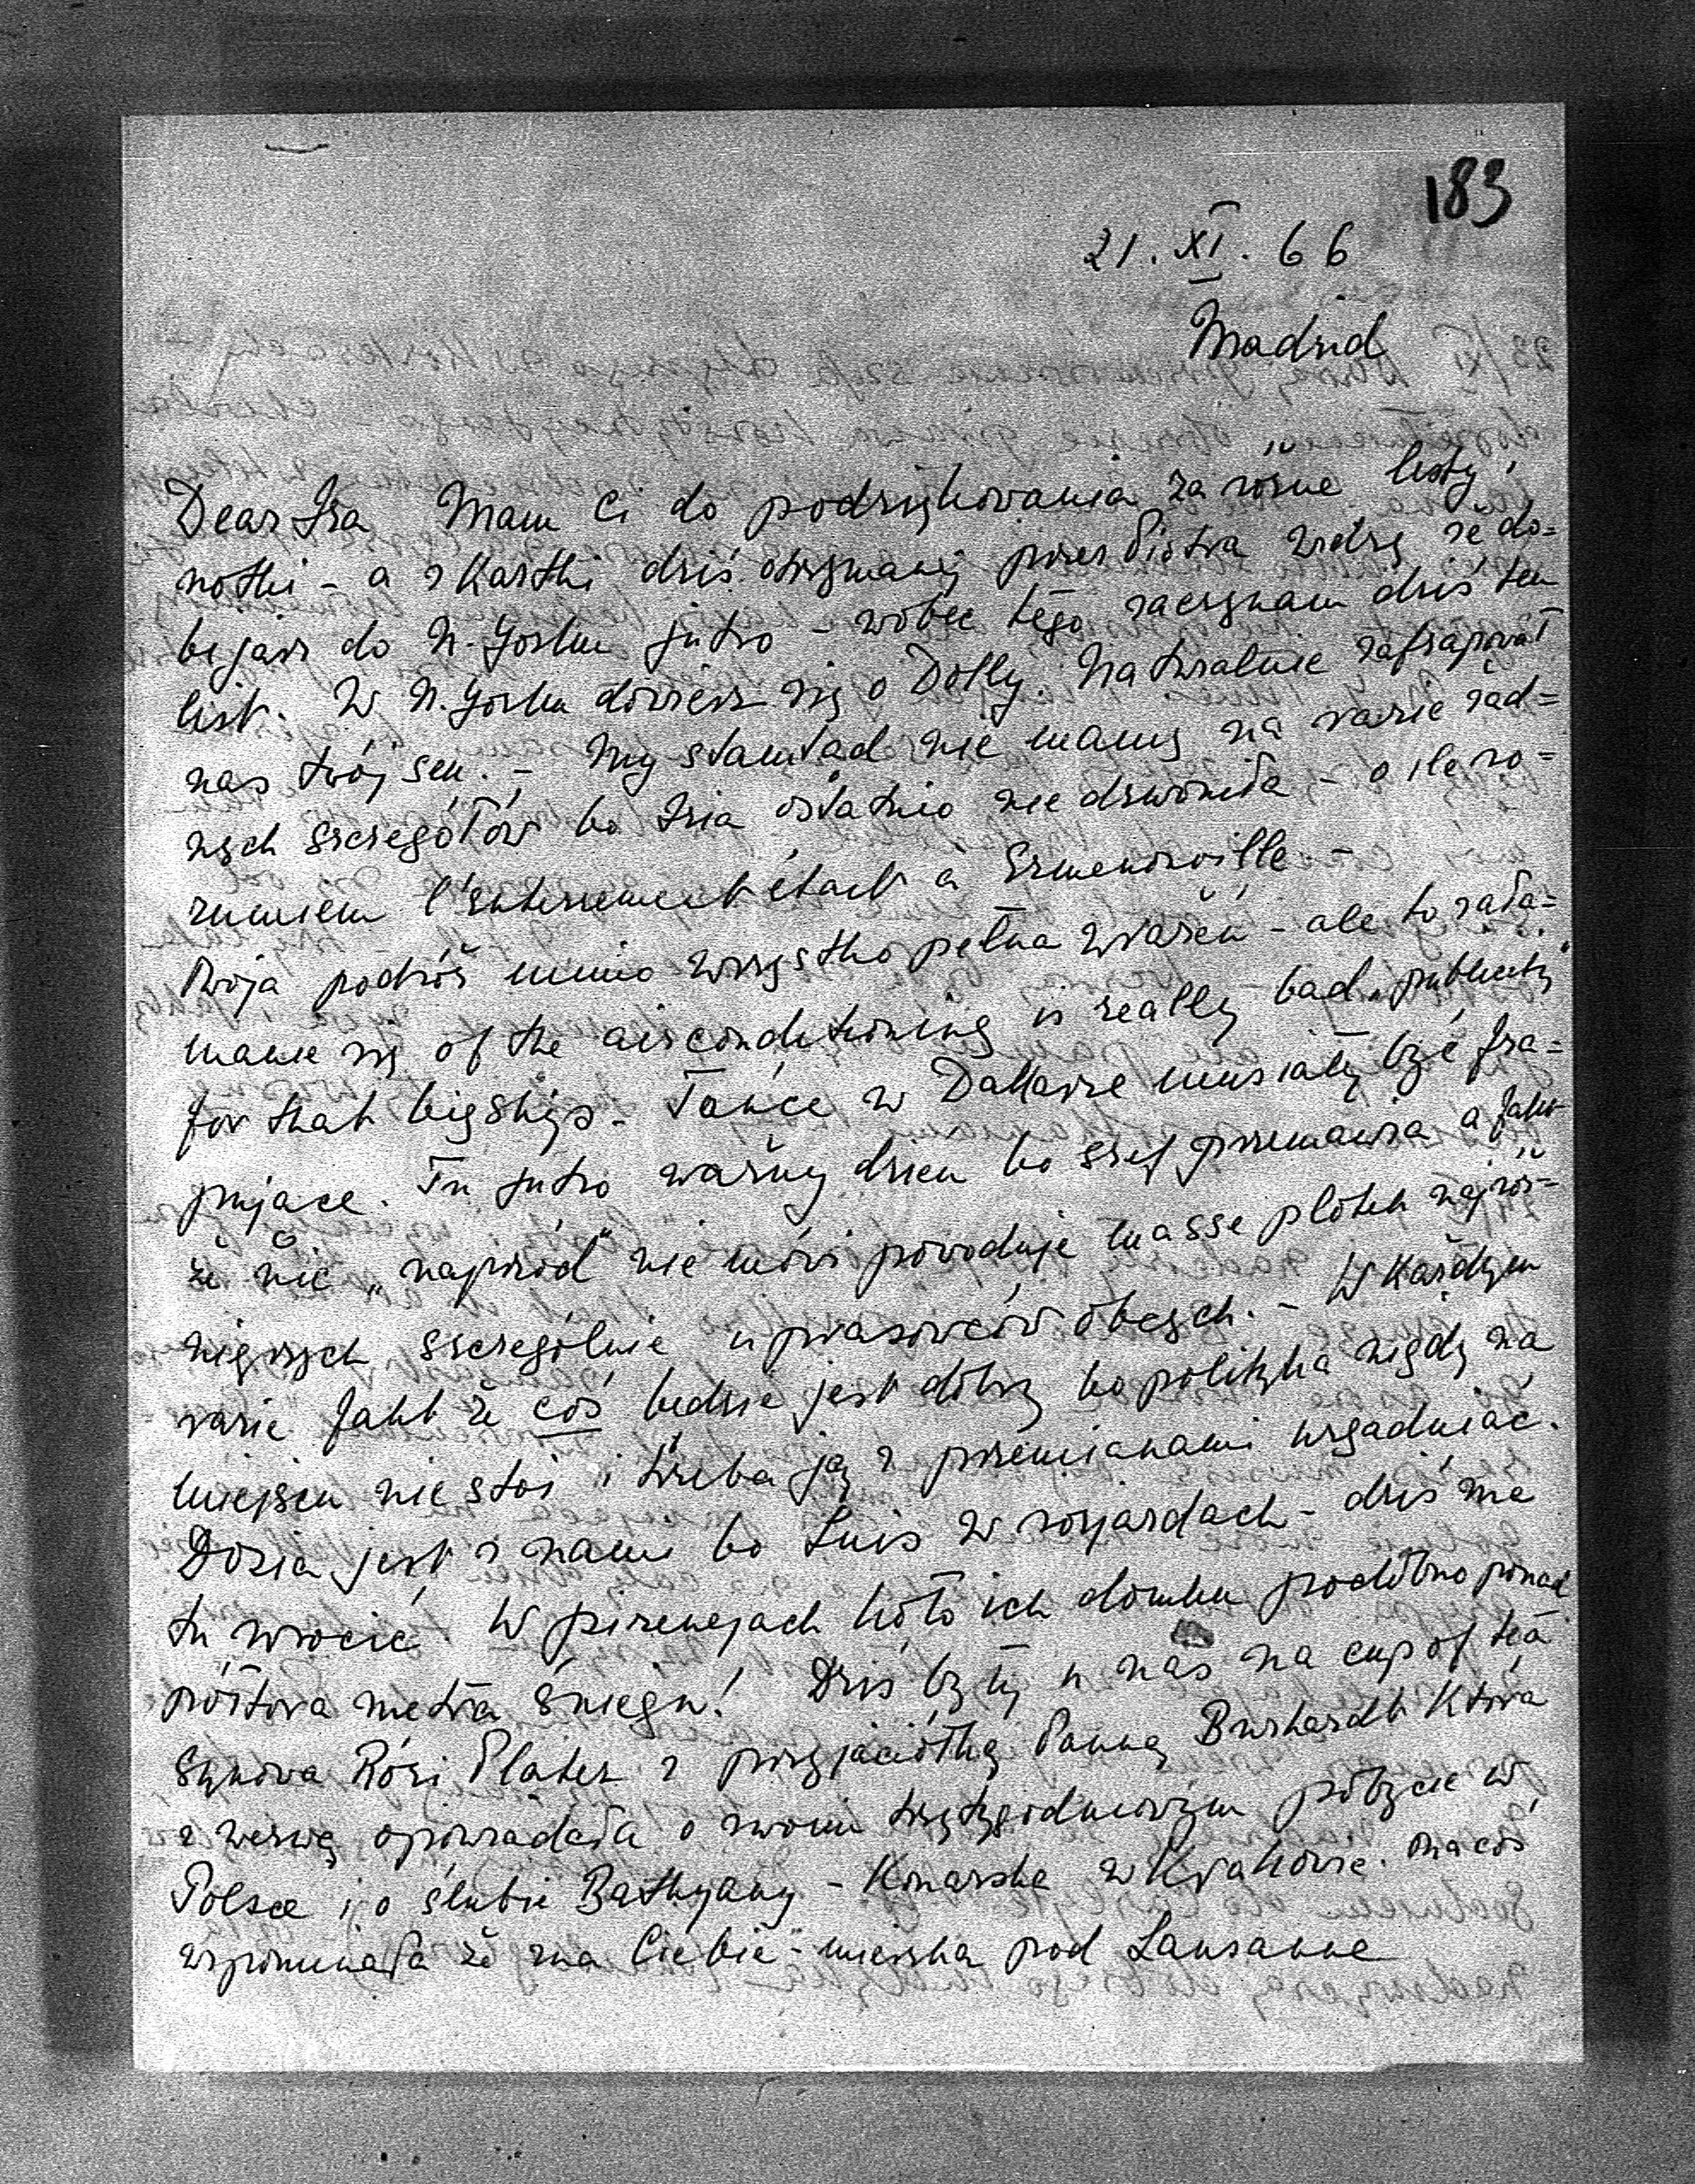 183
21. XI. 66
Madrid
Dear Ira Mam Ci do podziękowania za różne listy,
notki - a z Kartki dziś otrzymanej przez Piotra widzę że do=
bijasz do N. Yorku jutro - wobec tego zaczynam dziś ten
list. W N. Yorku dowiesz się o Dolly. Naturalnie zafrapował
nas twój sen. - My stamtąd nie mamy na razie żad=
nych szczegółów bo Izia ostatnio nie dzwoniła - o ile ro=
zumiem l'enterrement était à Ermenonville -
Twoja podróż mimo wszystko pełna wrażeń - ale to zała=
manie się of the airconditioning is really bad "publicity"
for that big ship. Tańce w Dakarze musiały być fra=
pujące. Tu jutro ważny dzień bo szef przemawia a fakt
że nic „naprzód" nie mówi powoduje masse plotek najróż=
niejszych szczególnie u prasowców obcych. - W Każdym
razie fakt że coś będzie jest dobry bo polityka nigdy na
miejscu nie stoi i trzeba ją z przemianami uzgadniać.
Dozia jest z nami bo Luis w rozjazdach - dziś ma
tu wrócić. W pirenejach koło ich domku podobno ponad
półtora metra śniegu! Dziś były u nas na cup of tea
synowa Rózi Plater z przyjaciółką Panną Burhardt Która
z werwą opowiadała o swoim trzytygodniowym pobycie w
Polsce i o ślubie Bathyany - Konarska w Krakowie. Ona coś
wspominała że zna Ciebie - mieszka pod Lausanne